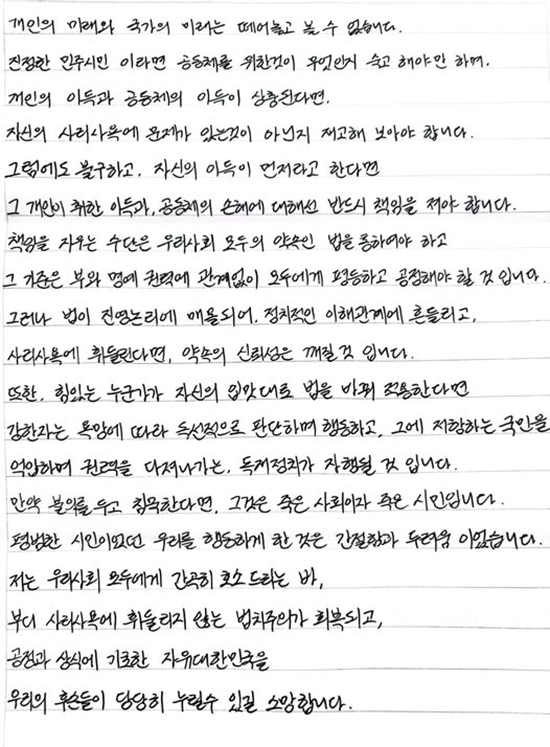 개인의 미래와 국가의 미래는 떼어놓고 볼 수 없습니다.
진정한 민주시민 이라면 공동체를 위한것이 무엇인지 숙고 해야만 하며.
개인의 이득과 공동체의 이득이 상충된다면.
자신의 사리사욕에 문제가 있는것이 아닌지 재고해 보아야 합니다.
그럼에도 불구하고. 자신의 이득이 먼저라고 한다면
그 개인이 취한 이득과, 공동체의 손해에 대해선 반드시 책임을 져야 합니다.
책임을 지우는 수단은 우리사회 모두의 약속인 법을 통하여야 하고
그 기준은 부와 명예 권력에 관계없이 모두에게 평등하고 공정해야 할 것 입니다.
그러나 법이 진영논리에 매몰되어. 정치적인 이해관계에 흔들리고,
사리사욕에 휘둘린다면, 약속의 신뢰성은 깨질것 입니다.
또한. 힘있는 누군가가 자신의 입맛대로 법을 바꿔 적용한다면
강한자는 욕망에 따라 독선적으로 판단하며 행동하고, 그에 저항하는 국민을
억압하며 권력을 다져나가는, 독재정치가 자행될 것 입니다.
만약 불의를 두고 침묵한다면, 그것은 죽은 사회이자 죽은 시민입니다.
평범한 시민이었던 우리를 행동하게 한 것은 간절함과 두려움 이었습니다.
저는 우리사회 모두에게 간곡히 호소 드리는 바,
부디 사리사욕에 휘둘리지 않는 법치주의가 회복되고,
공정과 상식에 기초한 자유대한민국을
우리의 후손들이 당당히 누릴수 있길 소망합니다.